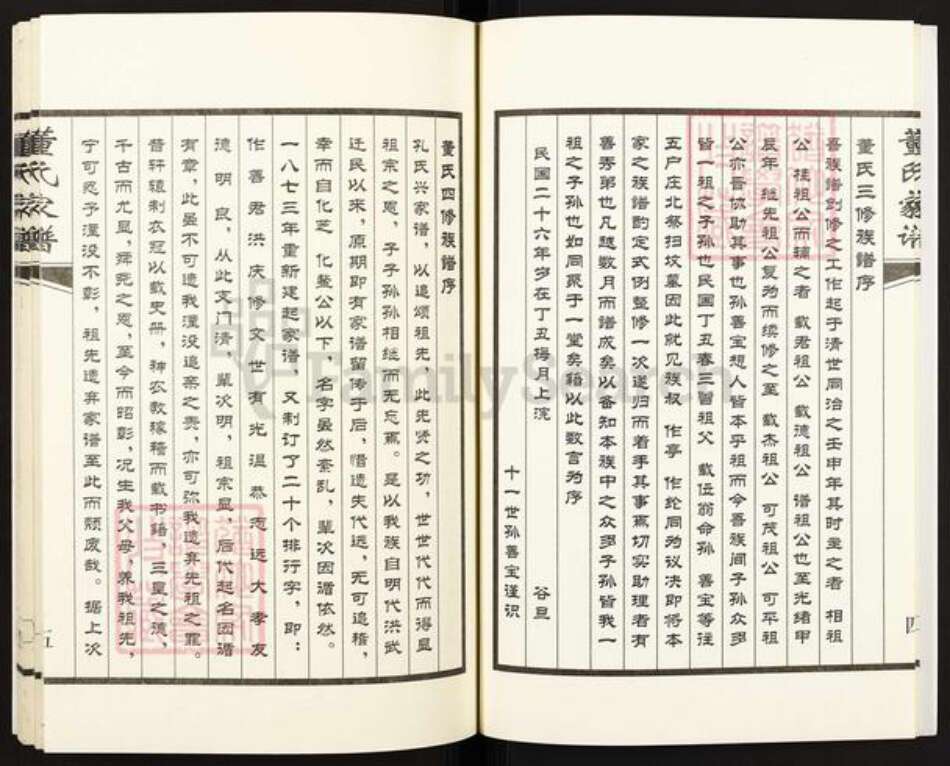 董氏族谱
四
董氏三修族谱序
吾族谱创修之工作起于清世同治之壬申年其时垂之者 相祖
公 桂祖公而辅之者 载君祖公 载德祖公 谱祖公也至光绪甲
辰年 继先祖公复为而续修之至 载杰祖公 可茂祖公 可平祖
公亦晋协助其事也孙善宝想人皆本乎祖而今吾族间子孙众多
皆一祖之子孙也民国丁丑春三曾祖父 载伍翁命孙 善宝等往
五户庄北祭扫坟墓因此就见族叔 作亭 作纶同为议决即将本
家之族谱酌定式例整修一次遂归而着手其事焉切实助理者有
善秀弟也凡越数月而谱成矣以备知本族中之众多子孙皆我一
祖之子孙也如同聚于一堂矣籍以此数言为序
民国二十六年岁在丁丑梅月上浣 谷旦
十一世孙善宝谨识
董氏四修族谱序
孔氏兴家谱，以追颂祖先，此先贤之功，世世代代而得显
祖宗之恩，子子孙孙相继而无忘焉。是以我族自明代洪武
迁民以来，原期即有家谱留传于后，惜遗失代远，无可追稽，
幸而自化芝 化鳌公以下，名字虽然紊乱，辈次因循依然。
一八七三年重新建起家谱，又制订了二十个排行字，即：
作善君洪庆修文世有光温恭志远大孝友
德明良，从此支门清，辈次明，祖宗显，后代起名因循
有章，此虽不可遗我湮没追亲之责，亦可弥我遗弃先祖之罪。
昔轩辕制衣冠以载史册，神农教稼穑而载书籍，三皇之德，
千古而尤显，舜尧之恩，至今而昭彰，况生我父母，养我祖先，
宁可忍予湮没不彰，祖先遗弃家谱至此而颓废哉。据上次
董氏族谱
五
FamilySearch